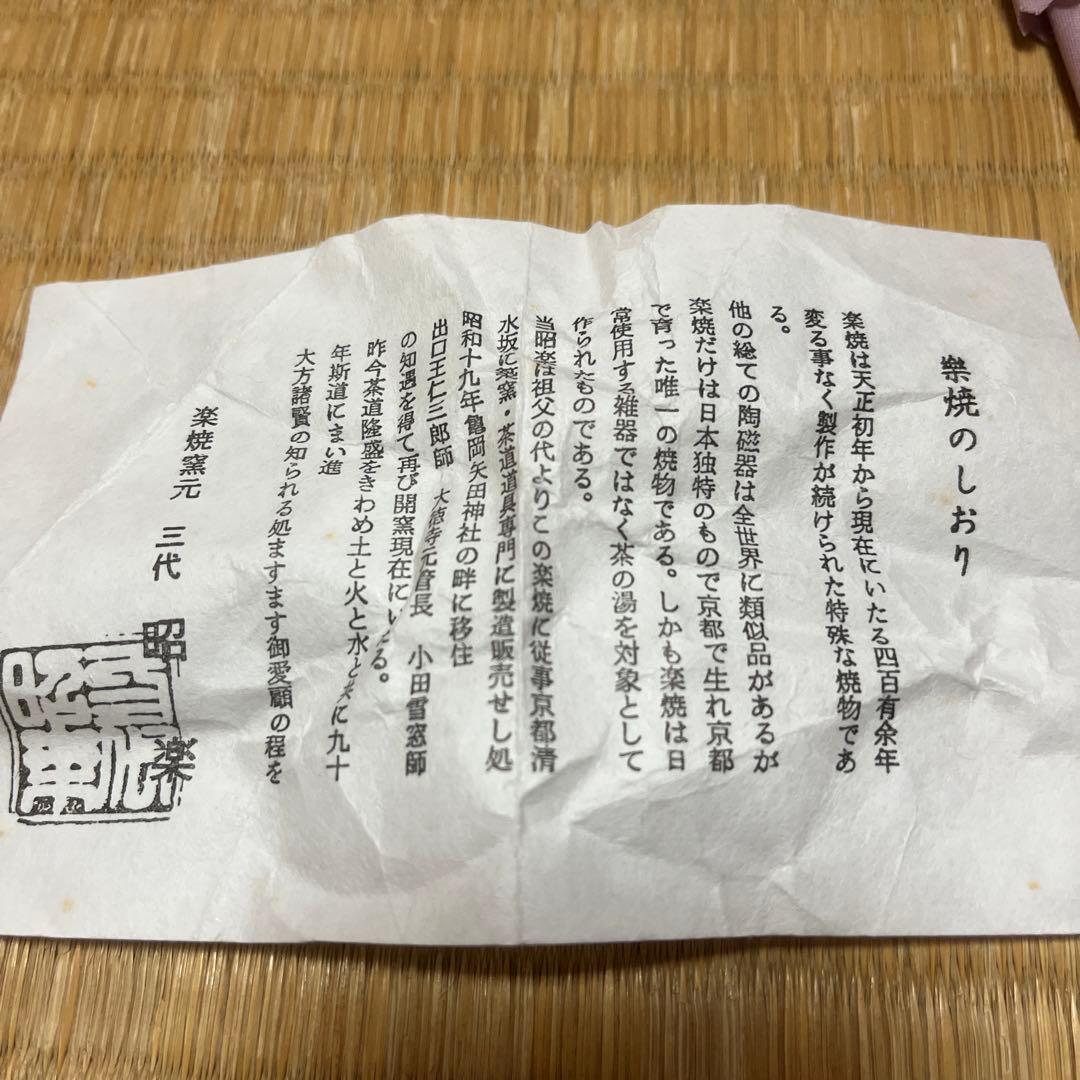 樂焼のしおり
楽焼は天正初年から現在にいたる四百有余年
変る事なく製作が続けられた特殊な焼物であ
る。
他の総ての陶磁器は全世界に類似品があるが
楽焼だけは日本独特のもので京都で生れ京都
で育った唯一の焼物である。しかも楽焼は日
常使用する雑器ではなく茶の湯を対象として
作られたものである。
当昭楽は祖父の代よりこの楽焼に従事京都清
水坂に築窯・茶道道具専門に製造販売せし処
昭和十九年亀岡矢田神社の畔に移住
出口王仁三郎師 大徳寺元管長 小田雪窓師
の知遇を得て再び開窯現在にいたる。
昨今茶道隆盛をきわめ土と火と水と炎に九十
年斯道にまい進
大方諸賢の知られる処ますます御愛顧の程を
楽焼窯元 三代 昭楽